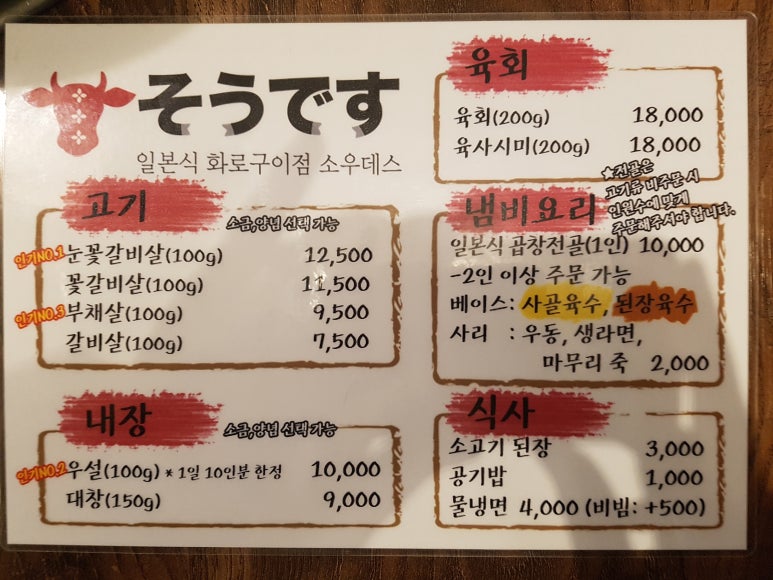 そうです
일본식 화로구이점 소우데스
고기
소금,양념 선택 가능
인기NO.1 눈꽃갈비살(100g) 12,500
꽃갈비살(100g) 11,500
인기NO.3 부채살(100g) 9,500
갈비살(100g) 7,500
내장
소금,양념 선택 가능
인기NO.2 우설(100g) * 1일 10인분 한정 10,000
대창(150g) 9,000
육회
육회(200g) 18,000
육사시미(200g) 18,000
★전골은
고기류 비주문 시
인원수에 맞게
주문해주셔야 합니다.
냄비요리
일본식 곱창전골(1인) 10,000
-2인 이상 주문 가능
베이스: 사골육수, 된장육수
사리 : 우동, 생라면,
마무리 죽 2,000
식사
소고기 된장 3,000
공기밥 1,000
물냉면 4,000 (비빔: +500)